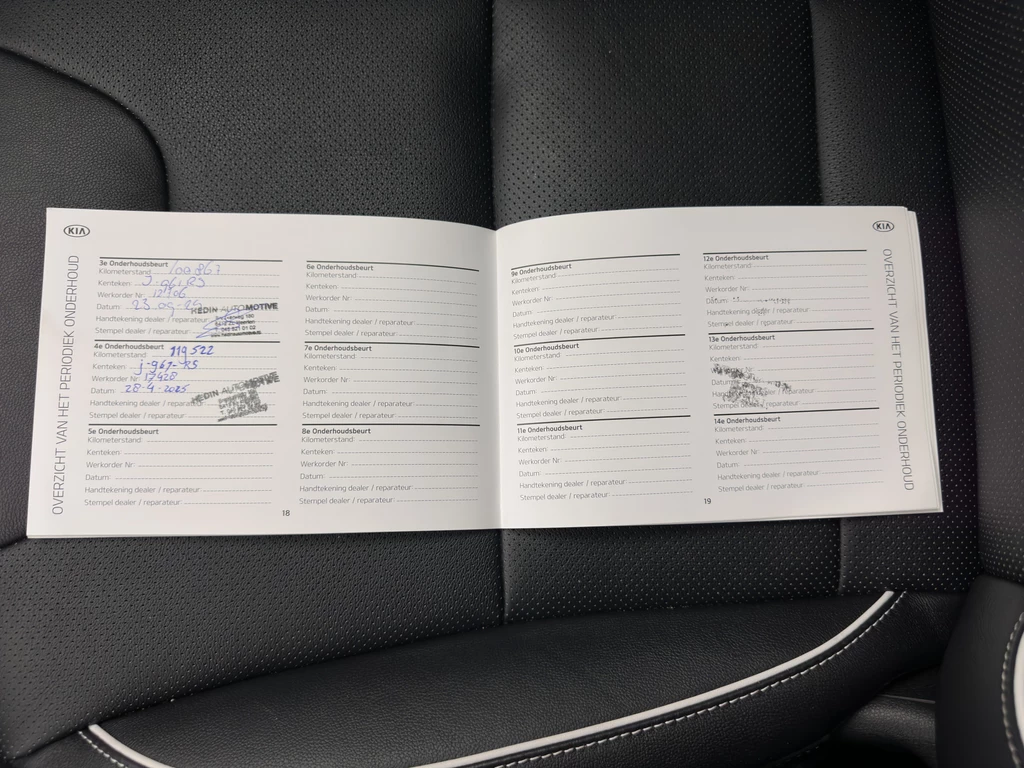 KIA
OVERZICHT VAN HET PERIODIEK ONDERHOUD
3e Onderhoudsbeurt
Kilometerstand 109867
Kenteken: J-961-RS
Werkorder Nr: 12706
Datum: 23-09-
HEDIN AUTOMOTIVE
Handtekening dealer / reparateur:
Stempel dealer / reparateur:
4e Onderhoudsbeurt
Kilometerstand 119522
Kenteken: j-967-RS
Werkorder Nr: 17428
Datum: 28-4-2025
HEDIN AUTOMOTIVE
Handtekening dealer / reparateur
Stempel dealer / reparateur:
5e Onderhoudsbeurt
Kilometerstand
Kenteken:
Werkorder Nr:
Datum:
Handtekening dealer / reparateur:
Stempel dealer / reparateur:
6e Onderhoudsbeurt
Kilometerstand
Kenteken:
Werkorder Nr:
Datum:
Handtekening dealer / reparateur:
Stempel dealer / reparateur:
7e Onderhoudsbeurt
Kilometerstand
Kenteken:
Werkorder Nr:
Datum:
Handtekening dealer / reparateur:
Stempel dealer / reparateur:
8e Onderhoudsbeurt
Kilometerstand
Kenteken:
Werkorder Nr:
Datum:
Handtekening dealer / reparateur:
Stempel dealer / reparateur:
18
KIA
OVERZICHT VAN HET PERIODIEK ONDERHOUD
9e Onderhoudsbeurt
Kilometerstand
Kenteken:
Werkorder Nr:
Datum:
Handtekening dealer / reparateur:
Stempel dealer / reparateur:
10e Onderhoudsbeurt
Kilometerstand
Kenteken:
Werkorder Nr:
Datum:
Handtekening dealer / reparateur:
Stempel dealer / reparateur:
11e Onderhoudsbeurt
Kilometerstand
Kenteken:
Werkorder Nr:
Datum:
Handtekening dealer / reparateur:
Stempel dealer / reparateur:
12e Onderhoudsbeurt
Kilometerstand
Kenteken:
Werkorder Nr:
Datum:
Handtekening dealer / reparateur:
Stempel dealer / reparateur:
13e Onderhoudsbeurt
Kilometerstand
Kenteken:
Werkorder Nr:
Datum:
Handtekening dealer / reparateur:
Stempel dealer / reparateur:
14e Onderhoudsbeurt
Kilometerstand
Kenteken:
Werkorder Nr:
Datum:
Handtekening dealer / reparateur:
Stempel dealer / reparateur:
19